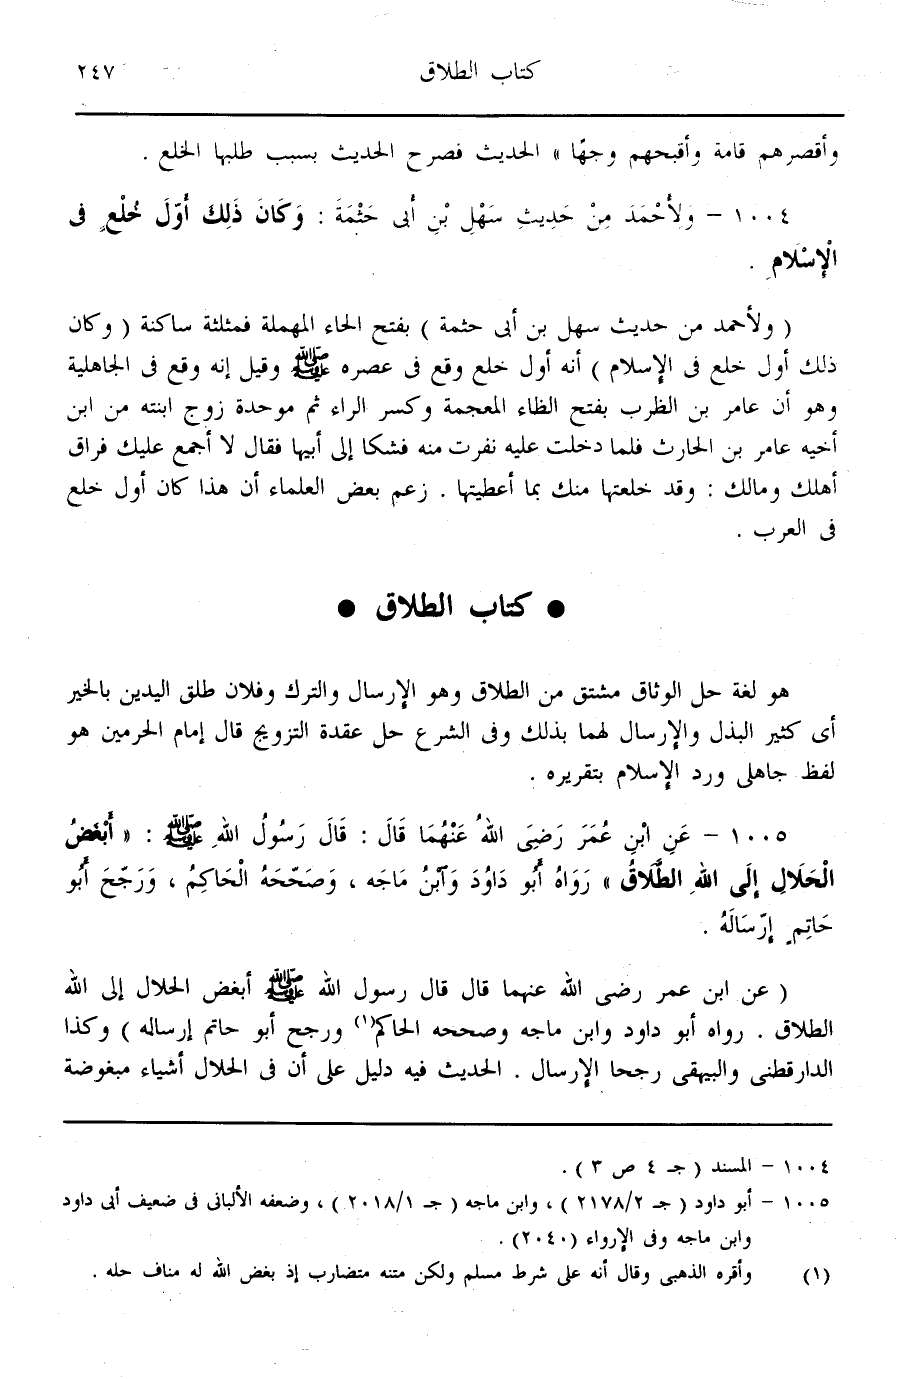 كتاب الطلاق ٢٤٧
وأقصرهم قامة وأقبحهم وجهًا » الحديث فصرح الحديث بسبب طلبها الخلع .
١٠٠٤ – وَلأَحْمَدَ مِنْ حَدِيثِ سَهْلِ بْنِ أَبِى حَثْمَةَ : وَكَانَ ذَلِكَ أَوّلَ خُلْعٍ فى
الْإِسْلامِ .
( ولأحمد من حديث سهل بن أبى حثمة ) بفتح الحاء المهملة فمثلثة ساكنة ( وكان
ذلك أول خلع فى الإسلام ) أنه أول خلع وقع فى عصره ﷺ وقيل إنه وقع فى الجاهلية
وهو أن عامر بن الظرب بفتح الظاء المعجمة وكسر الراء ثم موحدة زوج ابنته من ابن
أخيه عامر بن الحارث فلما دخلت عليه نفرت منه فشكا إلى أبيها فقال لا أجمع عليك فراق
أهلك ومالك : وقد خلعتها منك بما أعطيتها . زعم بعض العلماء أن هذا كان أول خلع
فى العرب .
● كتاب الطلاق ●
هو لغة حل الوثاق مشتق من الطلاق وهو الإرسال والترك وفلان طلق اليدين بالخير
أى كثير البذل والإرسال لهما بذلك وفى الشرع حل عقدة التزويج قال إمام الحرمين هو
لفظ جاهلى ورد الإسلام بتقريره .
١٠٠٥ – عَنِ ابْنِ عُمَرَ رَضِىَ اللهُ عَنْهُمَا قَالَ : قَالَ رَسُولُ اللهِ ﷺ : « أَبْغَضُ
الْحَلَالِ إِلَى اللهِ الطَّلَاقُ » رَوَاهُ أَبُو دَاوُدَ وَآبْنُ مَاجَه ، وَصَحّحَهُ الْحَاكِمُ ، وَرَجّحَ أَبُو
حَاتِمٍ إِرْسَالَهُ .
( عن ابن عمر رضى الله عنهما قال قال رسول الله ﷺ أبغض الحلال إلى الله
الطلاق . رواه أبو داود وابن ماجه وصححه الحاكم(١) ورجح أبو حاتم إرساله ) وكذا
الدارقطنى والبيهقى رجحا الإرسال . الحديث فيه دليل على أن فى الحلال أشياء مبغوضة
١٠٠٤ – المسند ( جـ ٤ ص ٣ ) .
١٠٠٥ – أبو داود ( جـ ٢١٧٨/٢ ) ، وابن ماجه ( جـ ٢٠١٨/١ ) ، وضعفه الألبانى فى ضعيف أبى داود
وابن ماجه وفى الإرواء (٢٠٤٠) .
(١) وأقره الذهبى وقال أنه على شرط مسلم ولكن متنه متضارب إذ بغض الله له مناف حله .